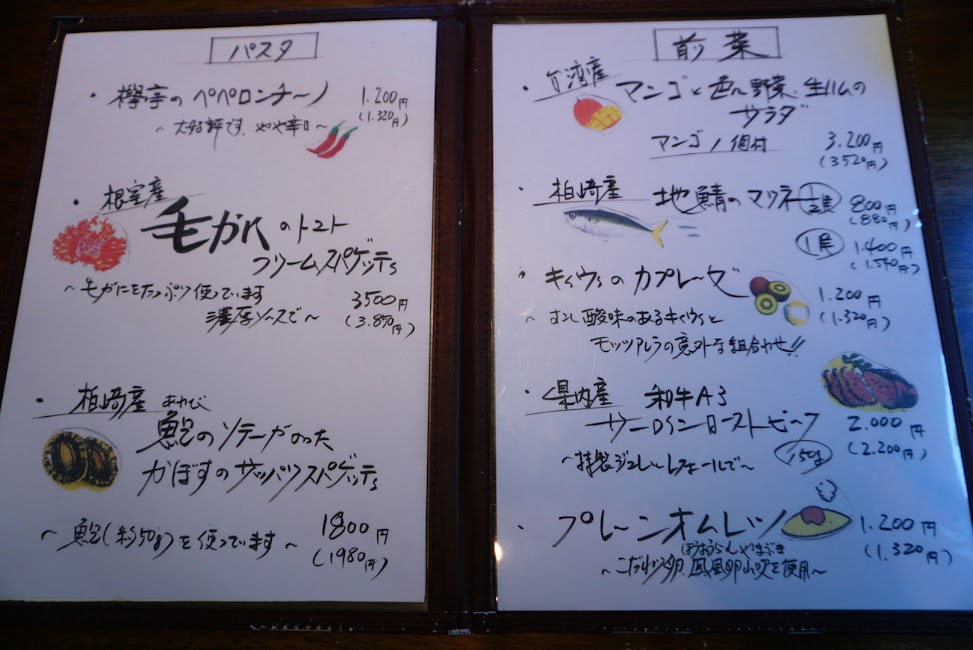 パスタ
・欅亭のペペロンチーノ 1.200円
(1.320円)
〜大好評です、やや辛口〜
・根室産
毛がにのトマト
クリームスパゲッティ
〜毛がにをたっぷり使っています
濃厚ソースで〜
3500円
(3.850円)
・柏崎産 あわび
鮑のソテーがのった
かぼすのサッパリスパゲッティ
〜鮑(約50g)を使っています〜
1800円
(1980円)
前菜
・台湾産 マンゴと色んな野菜、生ハムの
サラダ
マンゴ1個付 3.200円
(3520円)
・柏崎産 地鯖のマリネ 1/2尾 800円
(880円)
1尾 1.400円
(1.540円)
・キィウィのカプレーゼ 1.200円
(1.320円)
〜すこし酸味のあるキィウィと
モッツアレラの意外な組合わせ!!
・県内産 和牛A3
サーロインローストビーフ 2.000円
(2.200円)
〜特製ジュレとレフォールで〜 150g
・プレーンオムレツ 1.200円
(1.320円)
〜こだわり卵、鳳凰卵山吹を使用〜